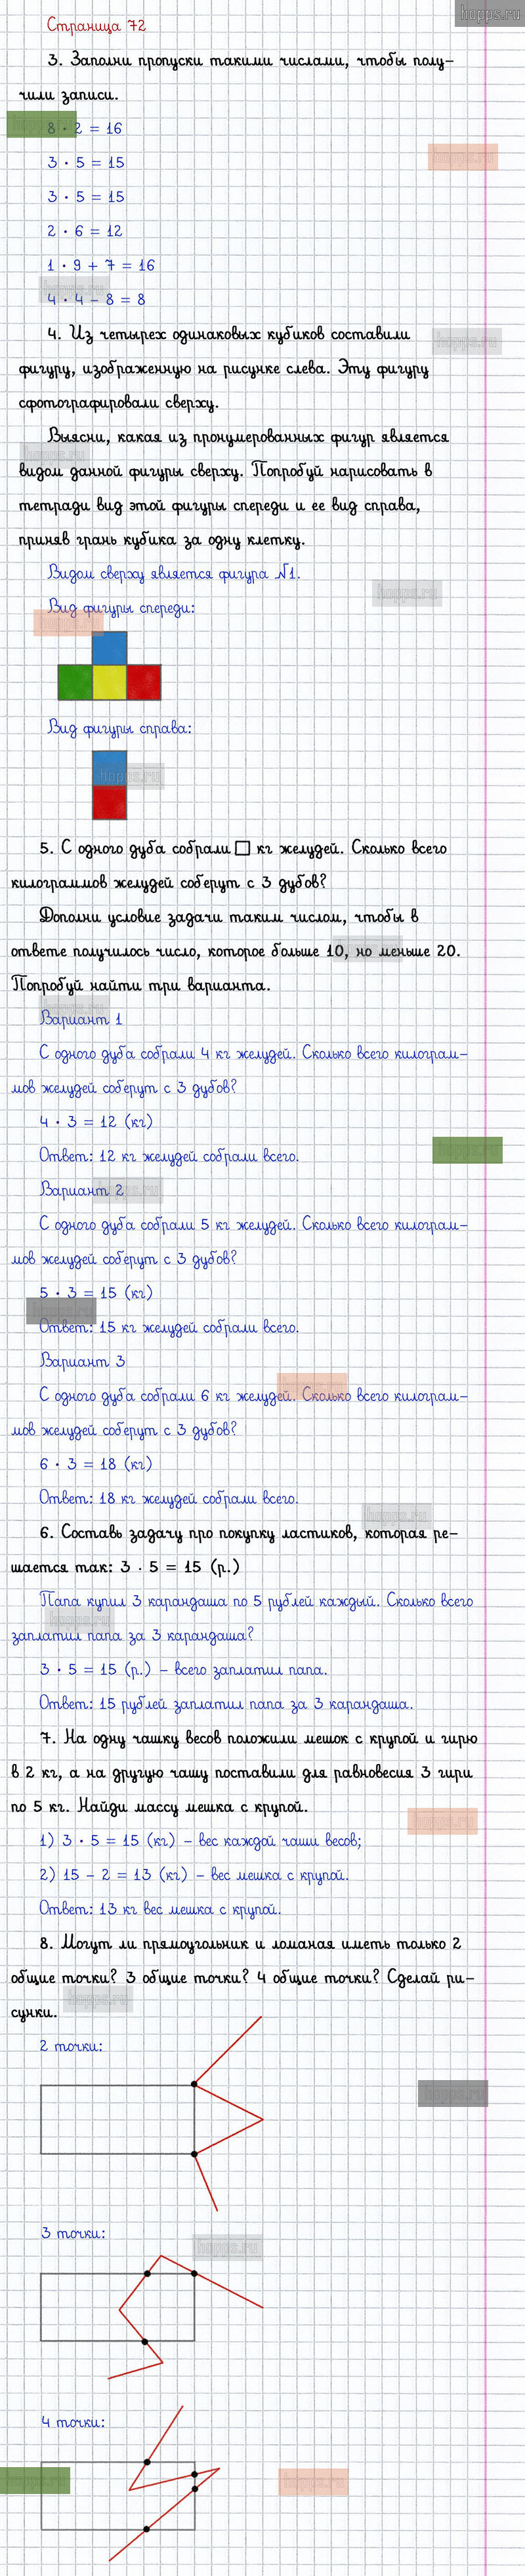 hopps.ru
Страница 72
3. Заполни пропуски такими числами, чтобы полу-
чили записи.
8 · 2 = 16
3 · 5 = 15
3 · 5 = 15
2 · 6 = 12
1 · 9 + 7 = 16
4 · 4 - 8 = 8
4. Из четырех одинаковых кубиков составили
фигуру, изображенную на рисунке слева. Эту фигуру
сфотографировали сверху.
Выясни, какая из пронумерованных фигур является
видом данной фигуры сверху. Попробуй нарисовать в
тетради вид этой фигуры спереди и ее вид справа,
приняв грань кубика за одну клетку.
Видом сверху является фигура №1.
Вид фигуры спереди:
Вид фигуры справа:
5. С одного дуба собрали □ кг желудей. Сколько всего
килограммов желудей соберут с 3 дубов?
Дополни условие задачи таким числом, чтобы в
ответе получилось число, которое больше 10, но меньше 20.
Попробуй найти три варианта.
Вариант 1
С одного дуба собрали 4 кг желудей. Сколько всего килограм-
мов желудей соберут с 3 дубов?
4 · 3 = 12 (кг)
Ответ: 12 кг желудей собрали всего.
Вариант 2
С одного дуба собрали 5 кг желудей. Сколько всего килограм-
мов желудей соберут с 3 дубов?
5 · 3 = 15 (кг)
Ответ: 15 кг желудей собрали всего.
Вариант 3
С одного дуба собрали 6 кг желудей. Сколько всего килограм-
мов желудей соберут с 3 дубов?
6 · 3 = 18 (кг)
Ответ: 18 кг желудей собрали всего.
6. Составь задачу про покупку ластиков, которая ре-
шается так: 3 · 5 = 15 (р.)
Папа купил 3 карандаша по 5 рублей каждый. Сколько всего
заплатил папа за 3 карандаша?
3 · 5 = 15 (р.) - всего заплатил папа.
Ответ: 15 рублей заплатил папа за 3 карандаша.
7. На одну чашку весов положили мешок с крупой и гирю
в 2 кг, а на другую чашу поставили для равновесия 3 гири
по 5 кг. Найди массу мешка с крупой.
1) 3 · 5 = 15 (кг) - вес каждой чаши весов;
2) 15 - 2 = 13 (кг) - вес мешка с крупой.
Ответ: 13 кг вес мешка с крупой.
8. Могут ли прямоугольник и ломаная иметь только 2
общие точки? 3 общие точки? 4 общие точки? Сделай ри-
сунки.
2 точки:
3 точки:
4 точки: